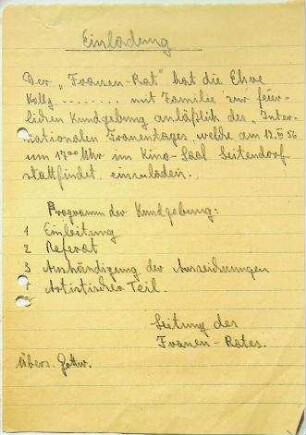 Einladung
Der „Frauen-Rat" hat die Ehre
Kollg. ........ mit Familie zur feier-
lichen Kundgebung anläßlich des „Inter-
nationalen Frauentages, welche am
um 17⁰⁰ Uhr im Kino-Saal Seitendorf
stattfindet, einzuladen.
Programm der Kundgebung:
1 Einleitung
2 Referat
3 Aushändigung der Auszeichnungen
4 Artistischer Teil.
Leitung des
Frauen-Rates.
Übers.